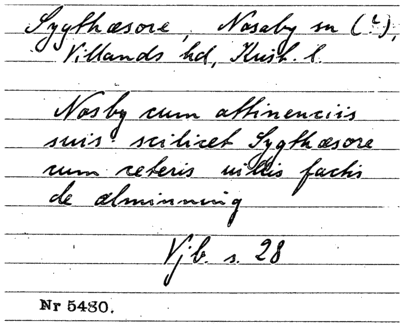 Sygthæsore, Nosaby sn (?),
Villands hd, Krist. l.
Nosby cum attinenciis
suis scilicet Sygthæsore
cum ceteris uillis factis
de alminning
Vjb. s. 28
Nr 5480.